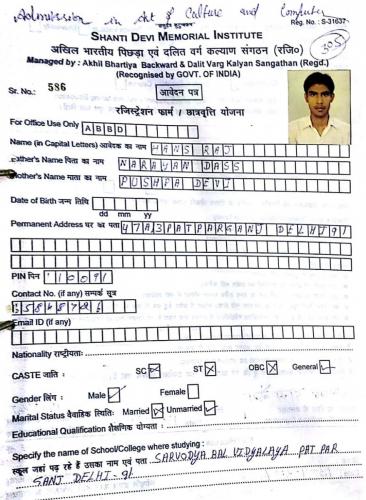 Admission in Art & Culture and Computer
Reg. No. : S-31637
SHANTI DEVI MEMORIAL INSTITUTE
305
अखिल भारतीय पिछड़ा एवं दलित वर्ग कल्याण संगठन (रजि०)
Managed by : Akhil Bhartiya Backward & Dalit Varg Kalyan Sangathan (Regd.)
(Recognised by GOVT. OF INDIA)
Sr. No.: 586
आवेदन पत्र
रजिस्ट्रेशन फार्म / छात्रवृत्ति योजना
For Office Use Only ABBD
Name (in Capital Letters) आवेदक का नाम HANS RAJ
ather's Name पिता का नाम NARAYAN DASS
Mother's Name माता का नाम PUSHPA DEVI
Date of Birth जन्म तिथि
dd mm yy
Permanent Address घर का पता 47A3PATPARGANJ DELHI91
PIN पिन 110091
Contact No. (if any) सम्पर्क सूत्र
Email ID (if any)
Nationality राष्ट्रीयताः
CASTE जाति : SC ST OBC General
Gender लिंग : Male Female
Marital Status वैवाहिक स्थितिः Married Unmarried
Educational Qualification शैक्षणिक योग्यता :
Specify the name of School/College where studying :
स्कूल जहां पढ़ रहे हैं उसका नाम एवं पता SARVODYA BAL VIDYALAYA PAT PAR
GANJ DELHI-91